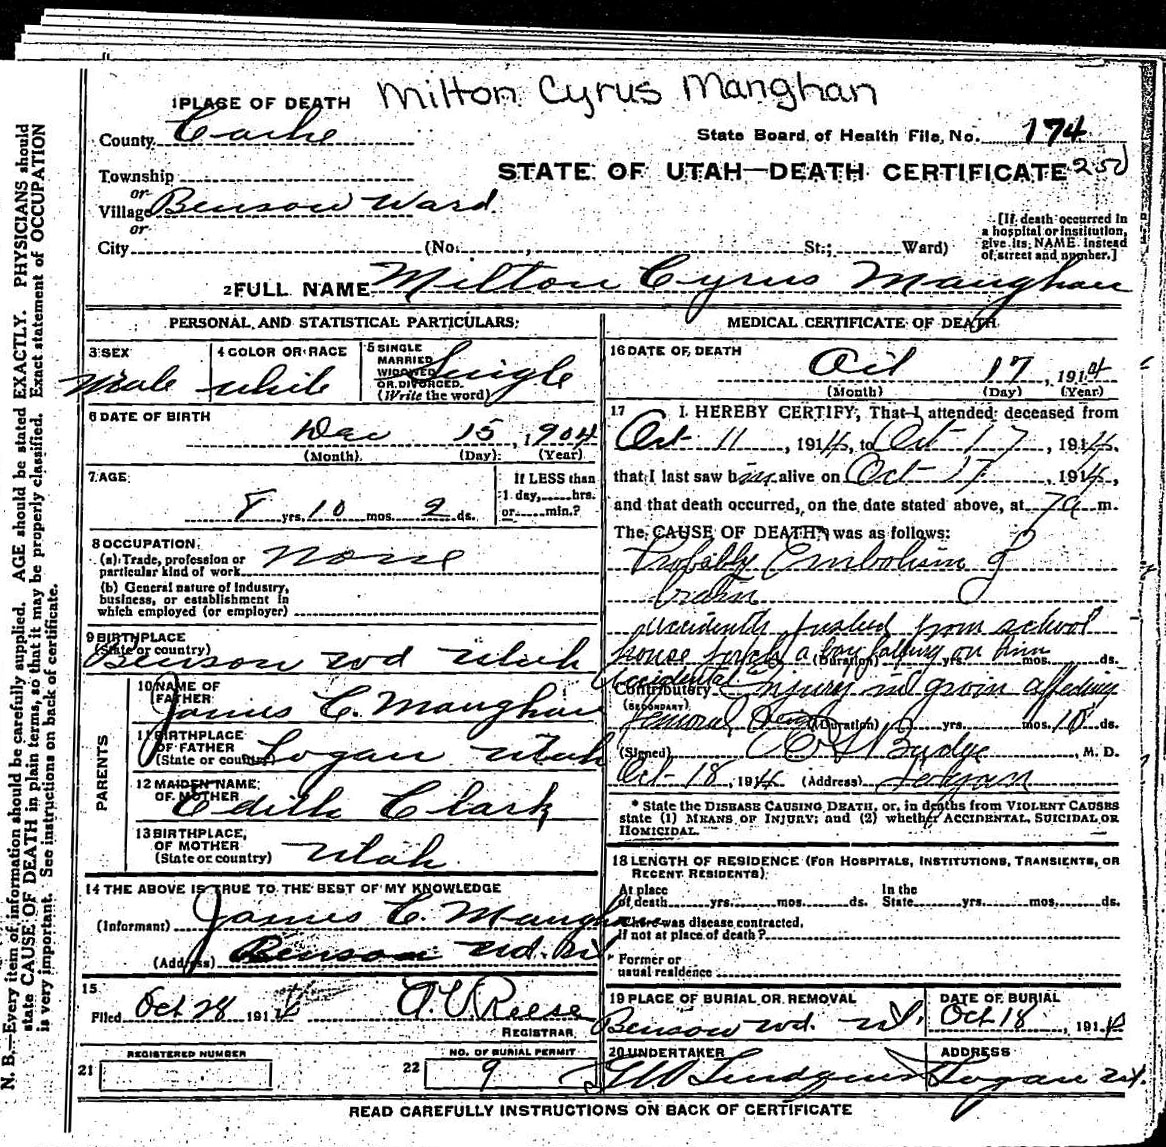 Milton Cyrus Manghan
1 PLACE OF DEATH
County Cache
State Board of Health File, No. 174
STATE OF UTAH—DEATH CERTIFICATE 250
Township
or
Village Benson Ward
or
City (No. , St.; Ward)
[If death occurred in
a hospital or institution,
give its NAME instead
of street and number.]
2 FULL NAME Milton Cyrus Maughan
PERSONAL AND STATISTICAL PARTICULARS:
3 SEX
Male
4 COLOR OR RACE
white
5 SINGLE
MARRIED
WIDOWED
OR DIVORCED.
(Write the word)
Single
6 DATE OF BIRTH
Dec 15, 1904
(Month) (Day) (Year)
7 AGE
8 yrs. 10 mos. 2 ds.
If LESS than
1 day, hrs.
or min.?
8 OCCUPATION
(a) Trade, profession or
particular kind of work None
(b) General nature of industry,
business, or establishment in
which employed (or employer)
9 BIRTHPLACE
(State or country)
Benson wd Utah
PARENTS
10 NAME OF
FATHER
James C. Maughan
11 BIRTHPLACE
OF FATHER
(State or country) Logan Utah
12 MAIDEN NAME
OF MOTHER
Edith Clark
13 BIRTHPLACE,
OF MOTHER
(State or country) Utah
14 THE ABOVE IS TRUE TO THE BEST OF MY KNOWLEDGE
(Informant) James C. Maughan
(Address) Benson wd.
15
Filed Oct 28 1914 REESE
REGISTRAR
REGISTERED NUMBER
21
NO. OF BURIAL PERMIT
22 9
MEDICAL CERTIFICATE OF DEATH
16 DATE OF DEATH
Oct 17, 1914
(Month) (Day) (Year)
17 I HEREBY CERTIFY, That I attended deceased from
Oct 11, 1914, to Oct 17, 1914,
that I last saw him alive on Oct 17, 1914,
and that death occurred, on the date stated above, at 7a m.
The CAUSE OF DEATH* was as follows:
Probably Embolism of
brain
accidently pushed from school
house porch a boy falling on him
(Duration) yrs. mos. ds.
accidental
Contributory Injury in groin affecting
(SECONDARY)
femoral (Duration) yrs. mos. 10 ds.
(Signed) Budge M. D.
Oct 18, 1914 (Address) Logan
* State the DISEASE CAUSING DEATH, or, in deaths from VIOLENT CAUSES
state (1) MEANS OF INJURY; and (2) whether ACCIDENTAL, SUICIDAL OR
HOMICIDAL.
18 LENGTH OF RESIDENCE (FOR HOSPITALS, INSTITUTIONS, TRANSIENTS, OR
RECENT RESIDENTS)
At place
of death yrs. mos. ds.
In the
State yrs. mos. ds.
Where was disease contracted,
If not at place of death?
Former or
usual residence
19 PLACE OF BURIAL OR REMOVAL
Benson wd. ut.
DATE OF BURIAL
Oct 18, 1914
20 UNDERTAKER
Lindquist
ADDRESS
Logan ut.
READ CAREFULLY INSTRUCTIONS ON BACK OF CERTIFICATE
N. B.—Every item of information should be carefully supplied. AGE should be stated EXACTLY. PHYSICIANS should
state CAUSE OF DEATH in plain terms, so that it may be properly classified. Exact statement of OCCUPATION
is very important. See instructions on back of certificate.